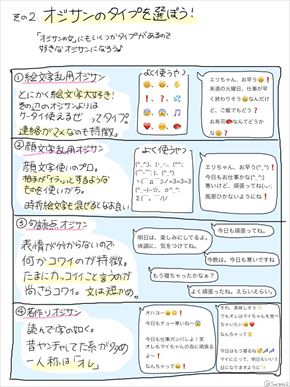 その2 オジサンのタイプを選ぼう!
「オジサンの文」にもいくつかタイプがあるので
好きなオジサンになろう♪
①絵文字乱用オジサン
とにかく絵文字大好き!
その辺のオジサンよりは
ケータイ使えるぜ ってタイプ
連絡がマメなのも特徴。
よく使うやつ
エリちゃん、お早う
来週の火曜日、仕事が早
く終わりそう なんだけ
ど、ご飯でもどう
お寿司 なんてどうか
な
②顔文字乱用オジサン
顔文字使いのプロ。
時折絵文字を混ぜるとなお良い
よく使うやつ
エリちゃん、お早う(^_^)
今日もお仕事かな(^_^)
寒いけど、頑張ってね(
風邪ひかないようにね(
③句読点オジサン
表情が分からないので
何かコワイのが特徴。
たまにカッコイイこと言うのが
尚さらコワイ。文は短かめ。
今日も頑張ってるね。
明日は、楽しみにしてるよ。
体調に、気をつけてね。
今晩は。今日も寒いですね
もう寝ちゃったかなぁ?
よく頑張ったね。えらいえらい。
④若作りオジサン
読んで字の如く。
昔ヤンチャしてた系が多め
一人称は「オレ」
オハヨー
今日もチョー寒いね〜
今日も仕事ガンバレよ!
笑
オレもマイちゃんの為に頑張る
よ〜!
それ、美味しそう
でもオレはマイちゃんを食べ
ちゃいたい
なんちゃって
今日はもう寝るね
マイにとって、明日もいい1
日になりますように